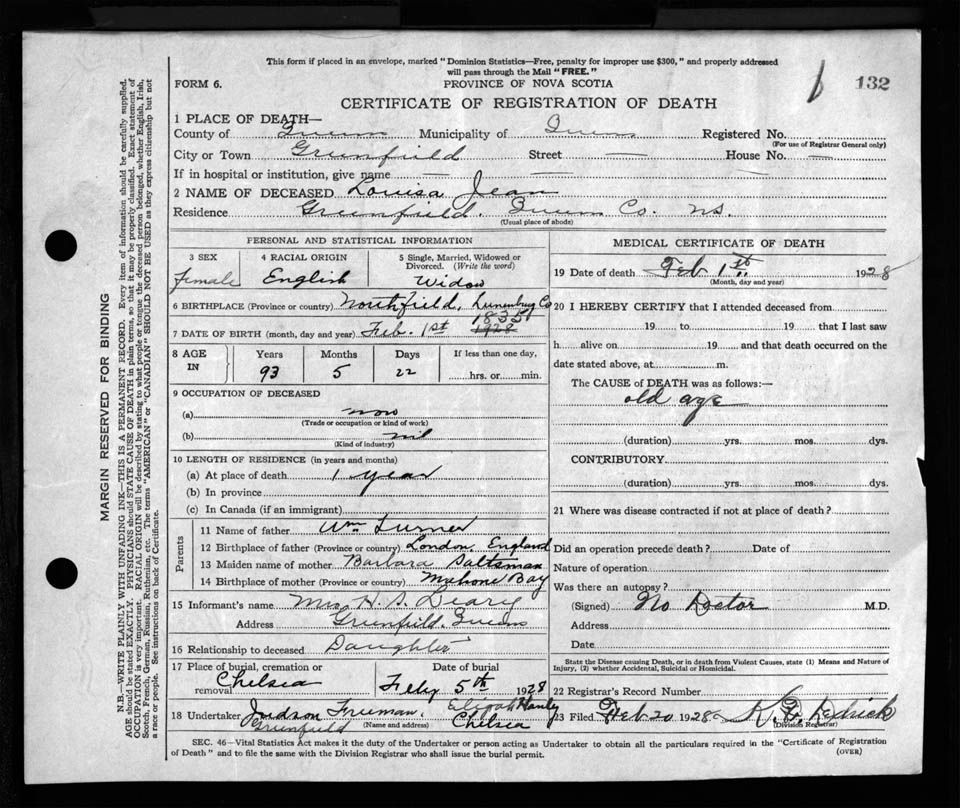 This form if placed in an envelope, marked "Dominion Statistics—Free, penalty for improper use $300," and properly addressed
will pass through the Mail "FREE."
FORM 6.
PROVINCE OF NOVA SCOTIA
132
CERTIFICATE OF REGISTRATION OF DEATH
1 PLACE OF DEATH—
County of Queens Municipality of Queens Registered No.
(For use of Registrar General only)
City or Town Greenfield Street — House No. —
If in hospital or institution, give name — — —
2 NAME OF DECEASED Louisa Jean
Residence Greenfield. Queens Co. N.S.
(Usual place of abode)
PERSONAL AND STATISTICAL INFORMATION
3 SEX
Female
4 RACIAL ORIGIN
English
5 Single, Married, Widowed or
Divorced. (Write the word)
Widow
6 BIRTHPLACE (Province or country) Northfield, Lunenburg Co
1835
7 DATE OF BIRTH (month, day and year) Feb. 1st 1928
8 AGE
IN
Years Months Days If less than one day,
93 5 22 hrs. or min.
9 OCCUPATION OF DECEASED
(a)
(Trade or occupation or kind of work)
(b) nil
(Kind of industry)
10 LENGTH OF RESIDENCE (in years and months)
(a) At place of death 1 year
(b) In province
(c) In Canada (if an immigrant)
Parents
11 Name of father Wm Turner
12 Birthplace of father (Province or country) London, England
13 Maiden name of mother Barbara Saltsman
14 Birthplace of mother (Province or country) Mahone Bay
15 Informant's name Mrs H. S.
Address Greenfield. Queens
16 Relationship to deceased Daughter
17 Place of burial, cremation or
removal Chelsea
Date of burial
Feby 5th 1928
18 Undertaker Judson Freeman. Elijah Hanley
Greenfield (Name and address) Chelsea
MEDICAL CERTIFICATE OF DEATH
19 Date of death Feb 1st 1928
(Month, day and year)
20 I HEREBY CERTIFY that I attended deceased from
19 to 19 that I last saw
h alive on 19 and that death occurred on the
date stated above, at m.
The CAUSE of DEATH was as follows:—
old age
(duration) yrs. mos. dys.
CONTRIBUTORY
(duration) yrs. mos. dys.
21 Where was disease contracted if not at place of death?
Did an operation precede death? Date of
Nature of operation
Was there an autopsy?
(Signed) No Doctor M.D.
Address
Date
State the Disease causing Death, or in death from Violent Causes, state (1) Means and Nature of
Injury, (2) whether Accidental, Suicidal or Homicidal.
22 Registrar's Record Number
23 Filed Feb 20 1928
(Division Registrar)
SEC. 46—Vital Statistics Act makes it the duty of the Undertaker or person acting as Undertaker to obtain all the particulars required in the "Certificate of Registration
of Death" and to file the same with the Division Registrar who shall issue the burial permit.
(OVER)
MARGIN RESERVED FOR BINDING
N.B.—WRITE PLAINLY WITH UNFADING INK—THIS IS A PERMANENT RECORD. Every item of information should be carefully supplied.
AGE should be stated EXACTLY. PHYSICIANS should STATE CAUSE OF DEATH in plain terms, so that it may be properly classified. Exact statement of
OCCUPATION is very important. RACIAL ORIGIN will be described by stating to what people or tongue the deceased person belonged, whether English, Irish,
Scotch, French, German, Russian, Ruthenian, etc. The terms "AMERICAN" or "CANADIAN" SHOULD NOT BE USED as they express citizenship but not
a race or people. See instructions on back of Certificate.